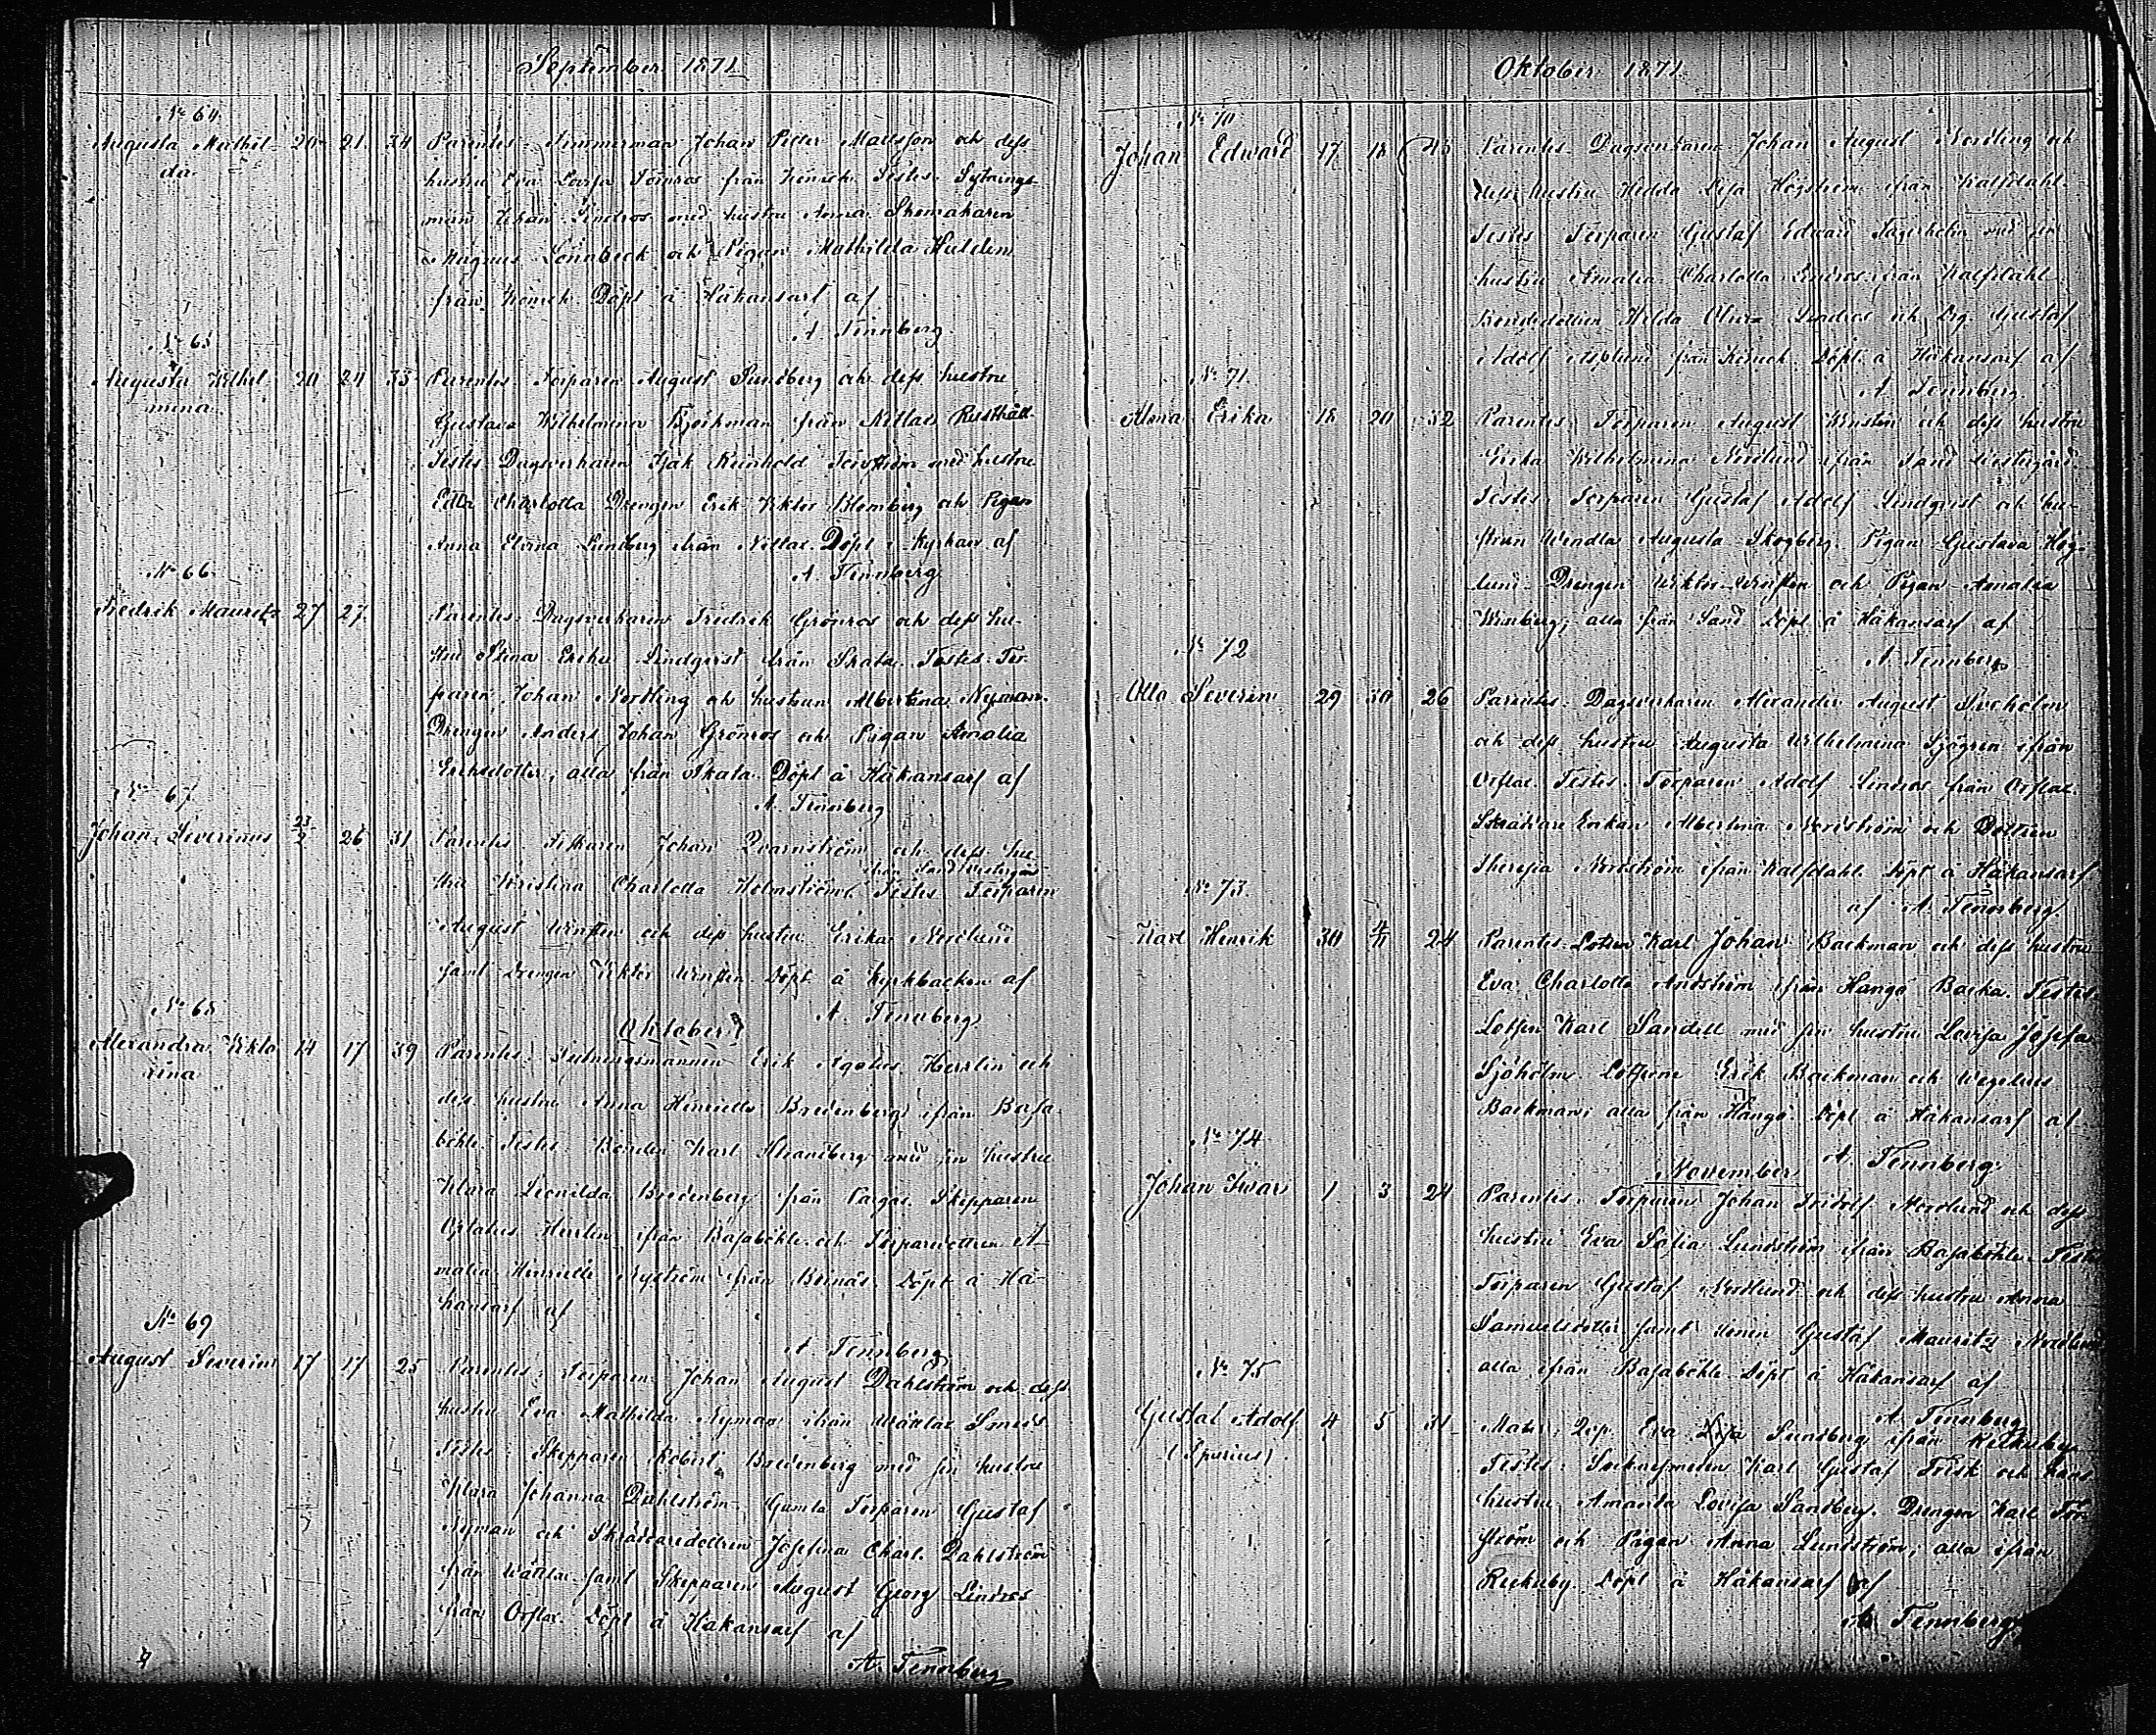 September 1871
No 64.
Augusta Mathil- 20 21 34 Parentes: Timmerman Johan Petter Mattsson och dess
da hustru Eva Lovisa Törnros från Sytnings-
man Johan Lindros med hustru Anna Skomakaren
Magnus Lönnbeck och Pigan Mathilda Hulden
från Döpt å Håkansarf af
A. Tennberg
No 65
Augusta Wilhel- 20 24 33 Parentes Torparen August Sundberg och dess hustru
mina Gustava Wilhelmina Björkman från Nitlax Rusthåll
Testes Dagsverkaren Isak Reinhold med hustru
Charlotta Drengen Erik Viktor Blomberg och Pigan
Anna Elvina Sundberg från Nitlax. Döpt i Kyrkan af
A. Tennberg
No 66.
Fredrik Mauritz 27 27. Parentes. Dagsverkaren Fredrik Grönros och dess hu-
stru Stina Lindqvist från Skata. Testes. Tor-
paren Johan Nordling och hustrun Albertina Nyman.
Drengen Anders Johan Grönros och Pigan Amalia
Eriksdotter, alla från Skata. Döpt å Håkansarf af
A. Tennberg
No 67.
Johan Severinus 23/2 26 31 Parentes Johan Qvarnström och dess hu-
från Sand Westergård
stru Kristina Charlotta Holmström. Testes Torparen
August Winsten och dess hustru Erika Nordlund
samt Drengen Viktor Winsten Döpt å Kyrkbacken af
A. Tennberg
No 68
Oktober
Alexandra Vikto- 14 17 39 Parentes: Erik Herrlin och
rina des hustru Anna Henrietta Bredenberg ifrån Basa-
böhle. Testes. Bonden Karl Strandberg med sin hustru
Klara Leonilda Bredenberg från Pargas. Skepparen
Herrlin ifrån Basaböhle och Torparedottren A-
malia Henriette Nyström från Döpt å Hå-
kansarf af
A. Tennberg
No 69
August Severin 17 17 25 Parentes: Torparen Johan August Dahlström och dess
hustru Eva Mathilda Nyman ifrån
Testes: Skepparen Robert Bredenberg med sin hustru
Klara Johanna Dahlström Gamla Torparen Gustaf
Nyman och Skräddaredottren Josefina Charl. Dahlström
från samt Skepparen August Georg Lindros
från Orslax. Döpt å Håkansarf af
A. Tennberg
Oktober 1871.
No 70
Johan Edward 17 18 Parentes Dagsverkaren Johan August Nordling och
dess hustru Hedda Lisa Högström ifrån Kalfdahl.
Testes Torparen Gustaf Edward Fagerholm med sin
hustru Amalia Charlotta Lindros från Kalfdahl
Bondedottren Hilda Lindros och Drg. Gustaf
Adolf Asplund från Döpt å Håkansarf af
A. Tennberg.
No 71.
Alma Erika 18 20 32 Parentes Torparen August Winsten och dess hustru
Erika Wilhelmina Nordlund ifrån Sand Westergård.
Testes. Torparen Gustaf Adolf Lindqvist och hu-
strun Wendla Augusta Skogberg. Pigan Gustava Hög-
lund. Drengen Viktor Winsten och Pigan Amalia
Winberg; alla från Sand Döpt å Håkansarf af
A. Tennberg
No 72
Otto Severin 29 30 26 Parentes. Dagsverkaren Alexander August
och dess hustru Augusta Wilhelmina Sjögren ifrån
Orslax. Testes. Torparen Adolf Lindros från Orslax.
Enkan Albertina Nordström och Dottren
Theresia Nordström ifrån Kalfdahl Döpt å Håkansarf
af A. Tennberg.
No 73.
Karl Henrik 30 4/11 24 Parentes. Lotsen Karl Johan Backman och dess hustru
Eva Charlotta Andström från Hangö Backa. Testes
Lotsen Karl Sandell med sin hustru Lovisa Josefa
Sjöholm. Lotsene Erik Backman och Wegelius
Backman; alla från Hangö Döpt å Håkansarf af
A. Tennberg.
No 74
November
Johan Iwar 1 3 24 Parentes. Torparen Johan Fridolf Nordlund och dess
hustru Eva Sofia Lundström ifrån Basaböhle. Testes
Torparen Gustaf Nordlund och dess hustru Anna
Samuelsdotter samt Sonen Gustaf Mauritz Nordlund
alla ifrån Basaböhle Döpt å Håkansarf af
A. Tennberg
No 75
Gustaf Adolf 4 5 31 Mater: Eva Lisa Sundberg ifrån
(Spurius) Testes: Karl Gustaf Frisk och hans
hustru Amanda Lovisa Sandberg. Drengen Karl Tör-
ström och Pigan Anna Lundström; alla ifrån
Döpt å Håkansarf af
A Tennberg